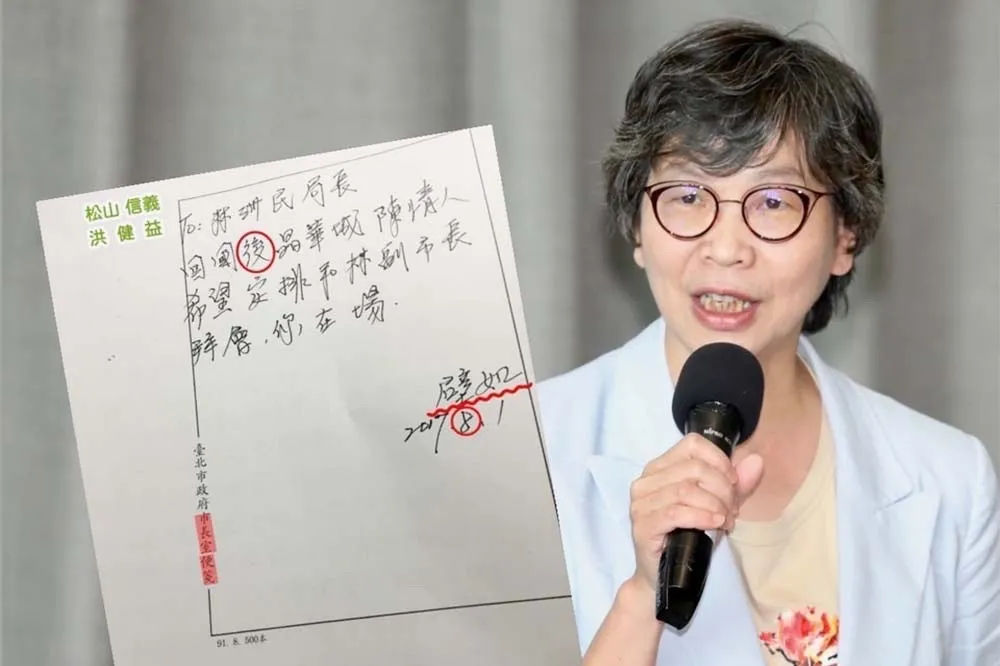 松山 信義
洪健益
To: 林洲民局長
回國後晶華城陳情人
希望安排和林副市長
拜會,你在場.
璧如
2017.8.1
臺北市政府市長室便箋
91. 8. 500本